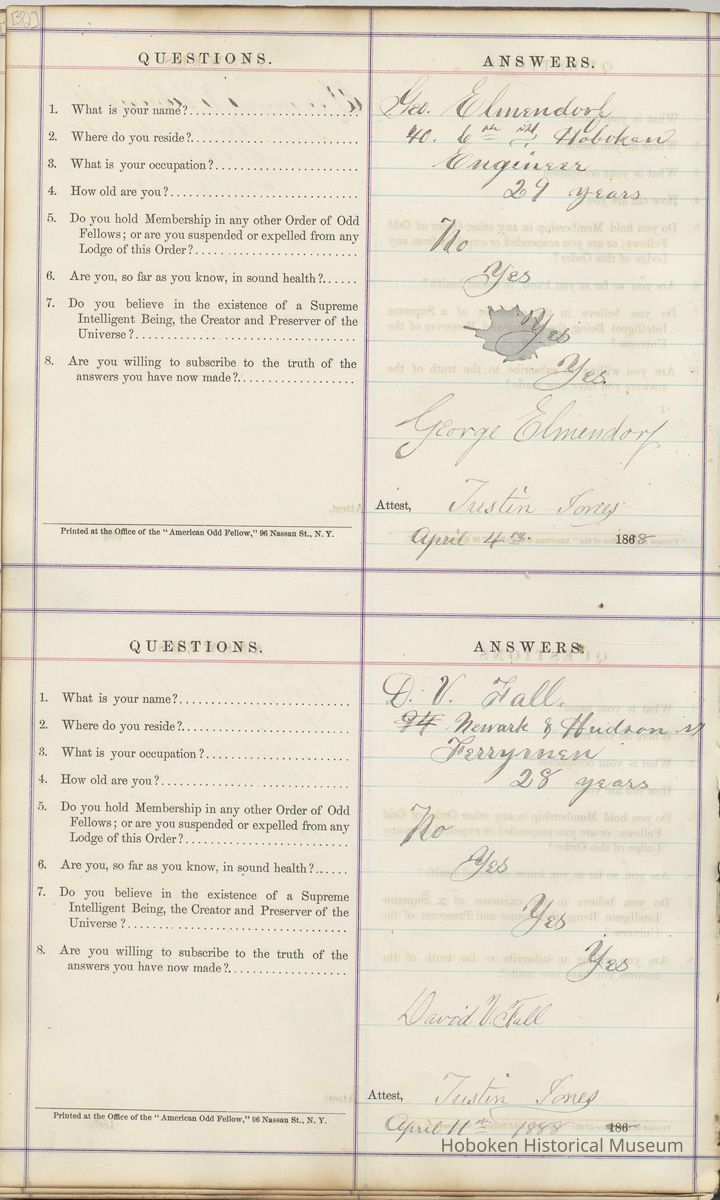 [32]
QUESTIONS.
ANSWERS.
1. What is your name?
Geo. Elmendorf
2. Where do you reside?
40. 6th St, Hoboken
3. What is your occupation?
Engineer
4. How old are you?
29 years
5. Do you hold Membership in any other Order of Odd
Fellows; or are you suspended or expelled from any
Lodge of this Order?
No
6. Are you, so far as you know, in sound health?
Yes
7. Do you believe in the existence of a Supreme
Intelligent Being, the Creator and Preserver of the
Universe?
Yes
8. Are you willing to subscribe to the truth of the
answers you have now made?
Yes.
George Elmendorf
Attest, Justin Jones
April 4th. 1868
Printed at the Office of the "American Odd Fellow," 96 Nassau St., N. Y.
QUESTIONS.
ANSWERS.
1. What is your name?
D. V. Fall.
2. Where do you reside?
94 Newark & Hudson st
3. What is your occupation?
Ferrymen
4. How old are you?
28 years
5. Do you hold Membership in any other Order of Odd
Fellows; or are you suspended or expelled from any
Lodge of this Order?
No
6. Are you, so far as you know, in sound health?
Yes
7. Do you believe in the existence of a Supreme
Intelligent Being, the Creator and Preserver of the
Universe?
Yes
8. Are you willing to subscribe to the truth of the
answers you have now made?
Yes
David V. Fall
Attest, Justin Jones
April 11th 1888 186
Printed at the Office of the "American Odd Fellow," 96 Nassau St., N. Y.
Hoboken Historical Museum